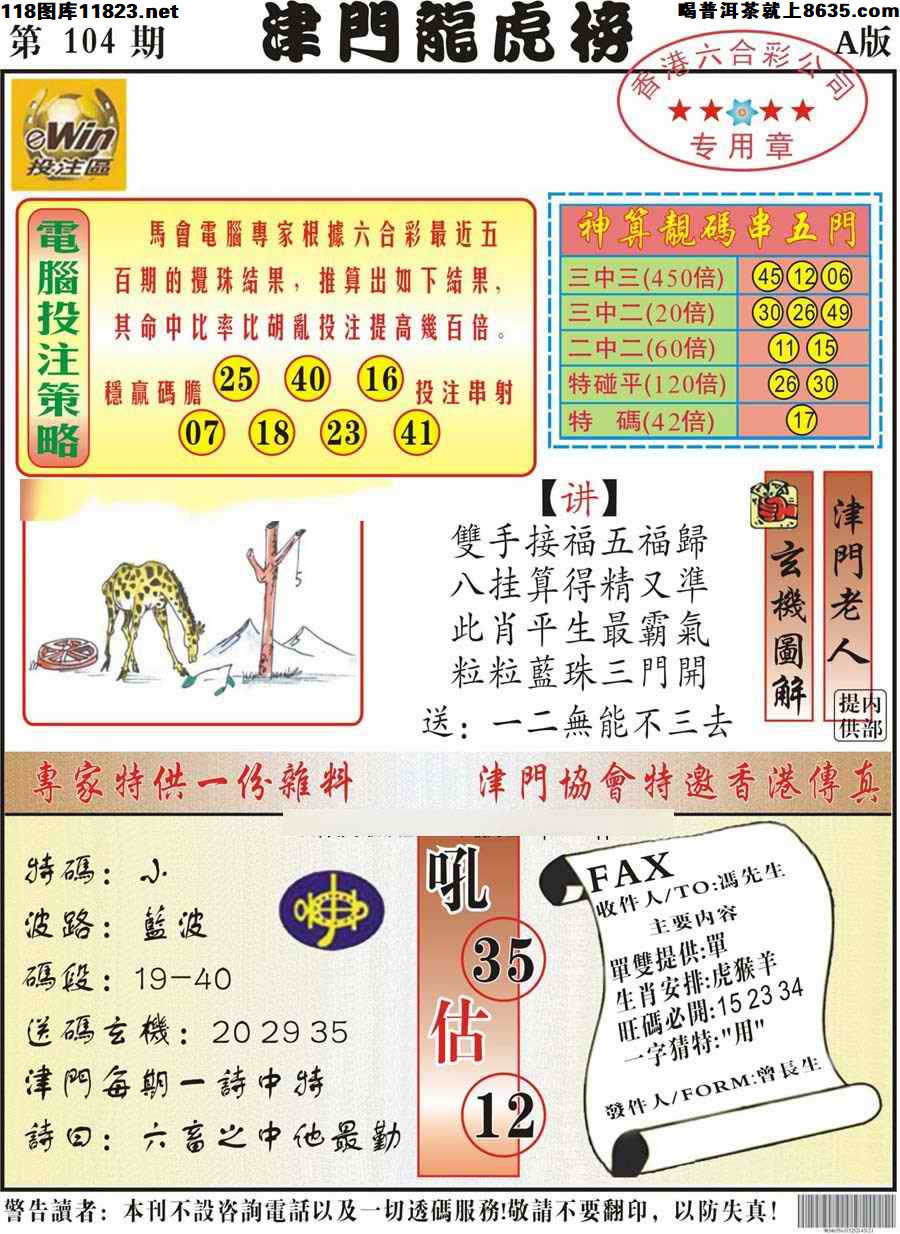 118图库11823.net
喝普洱茶就上8635.com
第 104 期
津門龍虎榜
A版
香港六合彩公司
专用章
eWin
投注區
電腦投注策略
馬會電腦專家根據六合彩最近五
百期的攪珠結果，推算出如下結果，
其命中比率比胡亂投注提高幾百倍。
穩贏碼膽 25 40 16 投注串射
07 18 23 41
神算靚碼串五門
三中三(450倍) 45 12 06
三中二(20倍) 30 26 49
二中二(60倍) 11 15
特碰平(120倍) 26 30
特 碼(42倍) 17
【讲】
雙手接福五福歸
八挂算得精又準
此肖平生最霸氣
粒粒藍珠三門開
送：一二無能不三去
玄機圖解
津門老人
内部提供
5
專家特供一份雜料
津門協會特邀香港傳真
特碼：小
波路：藍波
碼段：19-40
送碼玄機：20 29 35
津門每期一詩中特
詩曰：六畜之中他最勤
吼
35
估
12
FAX
收件人/TO:馮先生
主要内容
單雙提供:單
生肖安排:虎猴羊
旺碼必開:15 23 34
一字猜特:"用"
發件人/FORM:曾長生
警告讀者：本刊不設咨詢電話以及一切透碼服務!敬請不要翻印，以防失真！